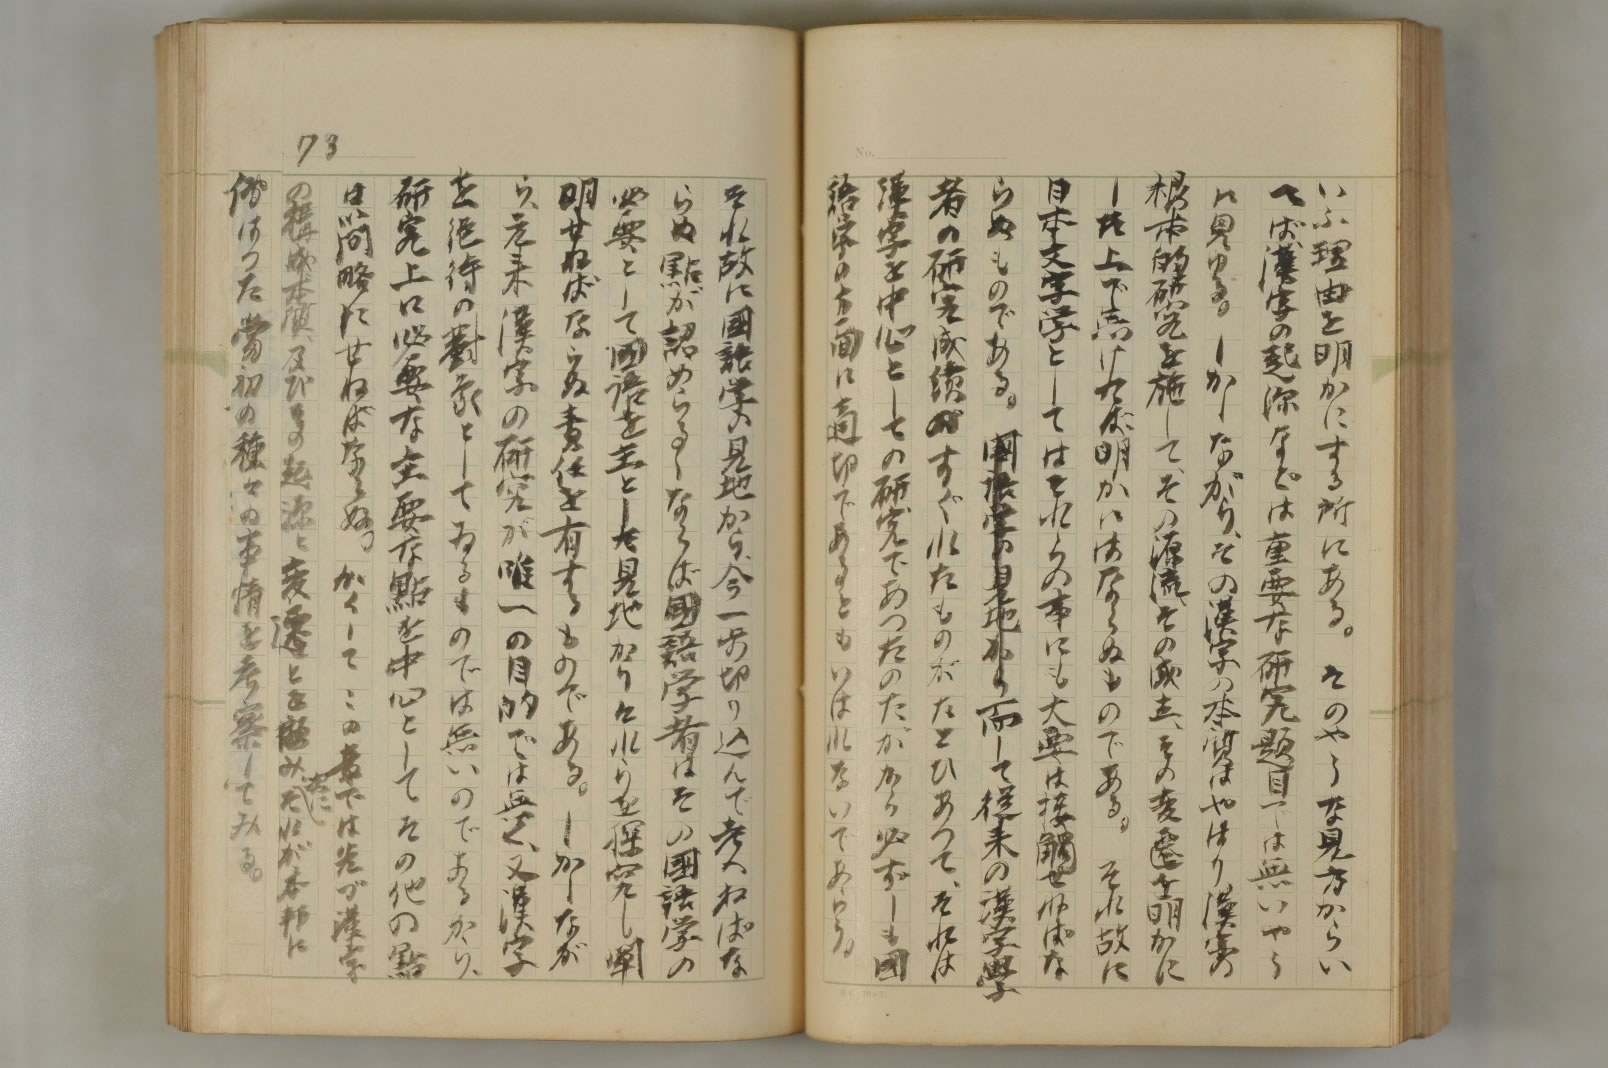 No.
いふ理由を明かにする所にある。そのやうな見方からい
へば漢字の起源などは重要な研究題目では無いやう
に見ゆる。しかしながら、その漢字の本質はやはり漢字の
根本的研究を施して、その源流、その成立、その変遷を明かに
した上で無ければ明かにはならぬものである。それ故に
日本文字学としてはそれらの事にも大要は接觸せねばな
らぬものである。國語学の見地から而して従来の漢字学
者の研究成績のすぐれたものがたとひあつて、それは
漢字を中心としての研究であつたのだから必ずしも國
語学の方面に適切であるともいはれないであらう。
73
それ故に國語学の見地から、今一歩切り込んで考へねばな
らぬ點が認めらるゝならば國語学者はその國語学の
必要として國語を主とした見地からそれらを探究し闡
明せねばならぬ責任を有するものである。しかしなが
ら、元来漢字の研究が唯一の目的では無く、又漢字
を絶待の對象としてゐるものでは無いのであるから、
研究上に必要な主要な點を中心としてその他の點
は簡略にせねばならぬ。かくしてこの書では先づ漢字
の構成本質、及びその起源と変遷とを顧み、それが本邦に
傳はつた當初の種々の事情を考察してみる。